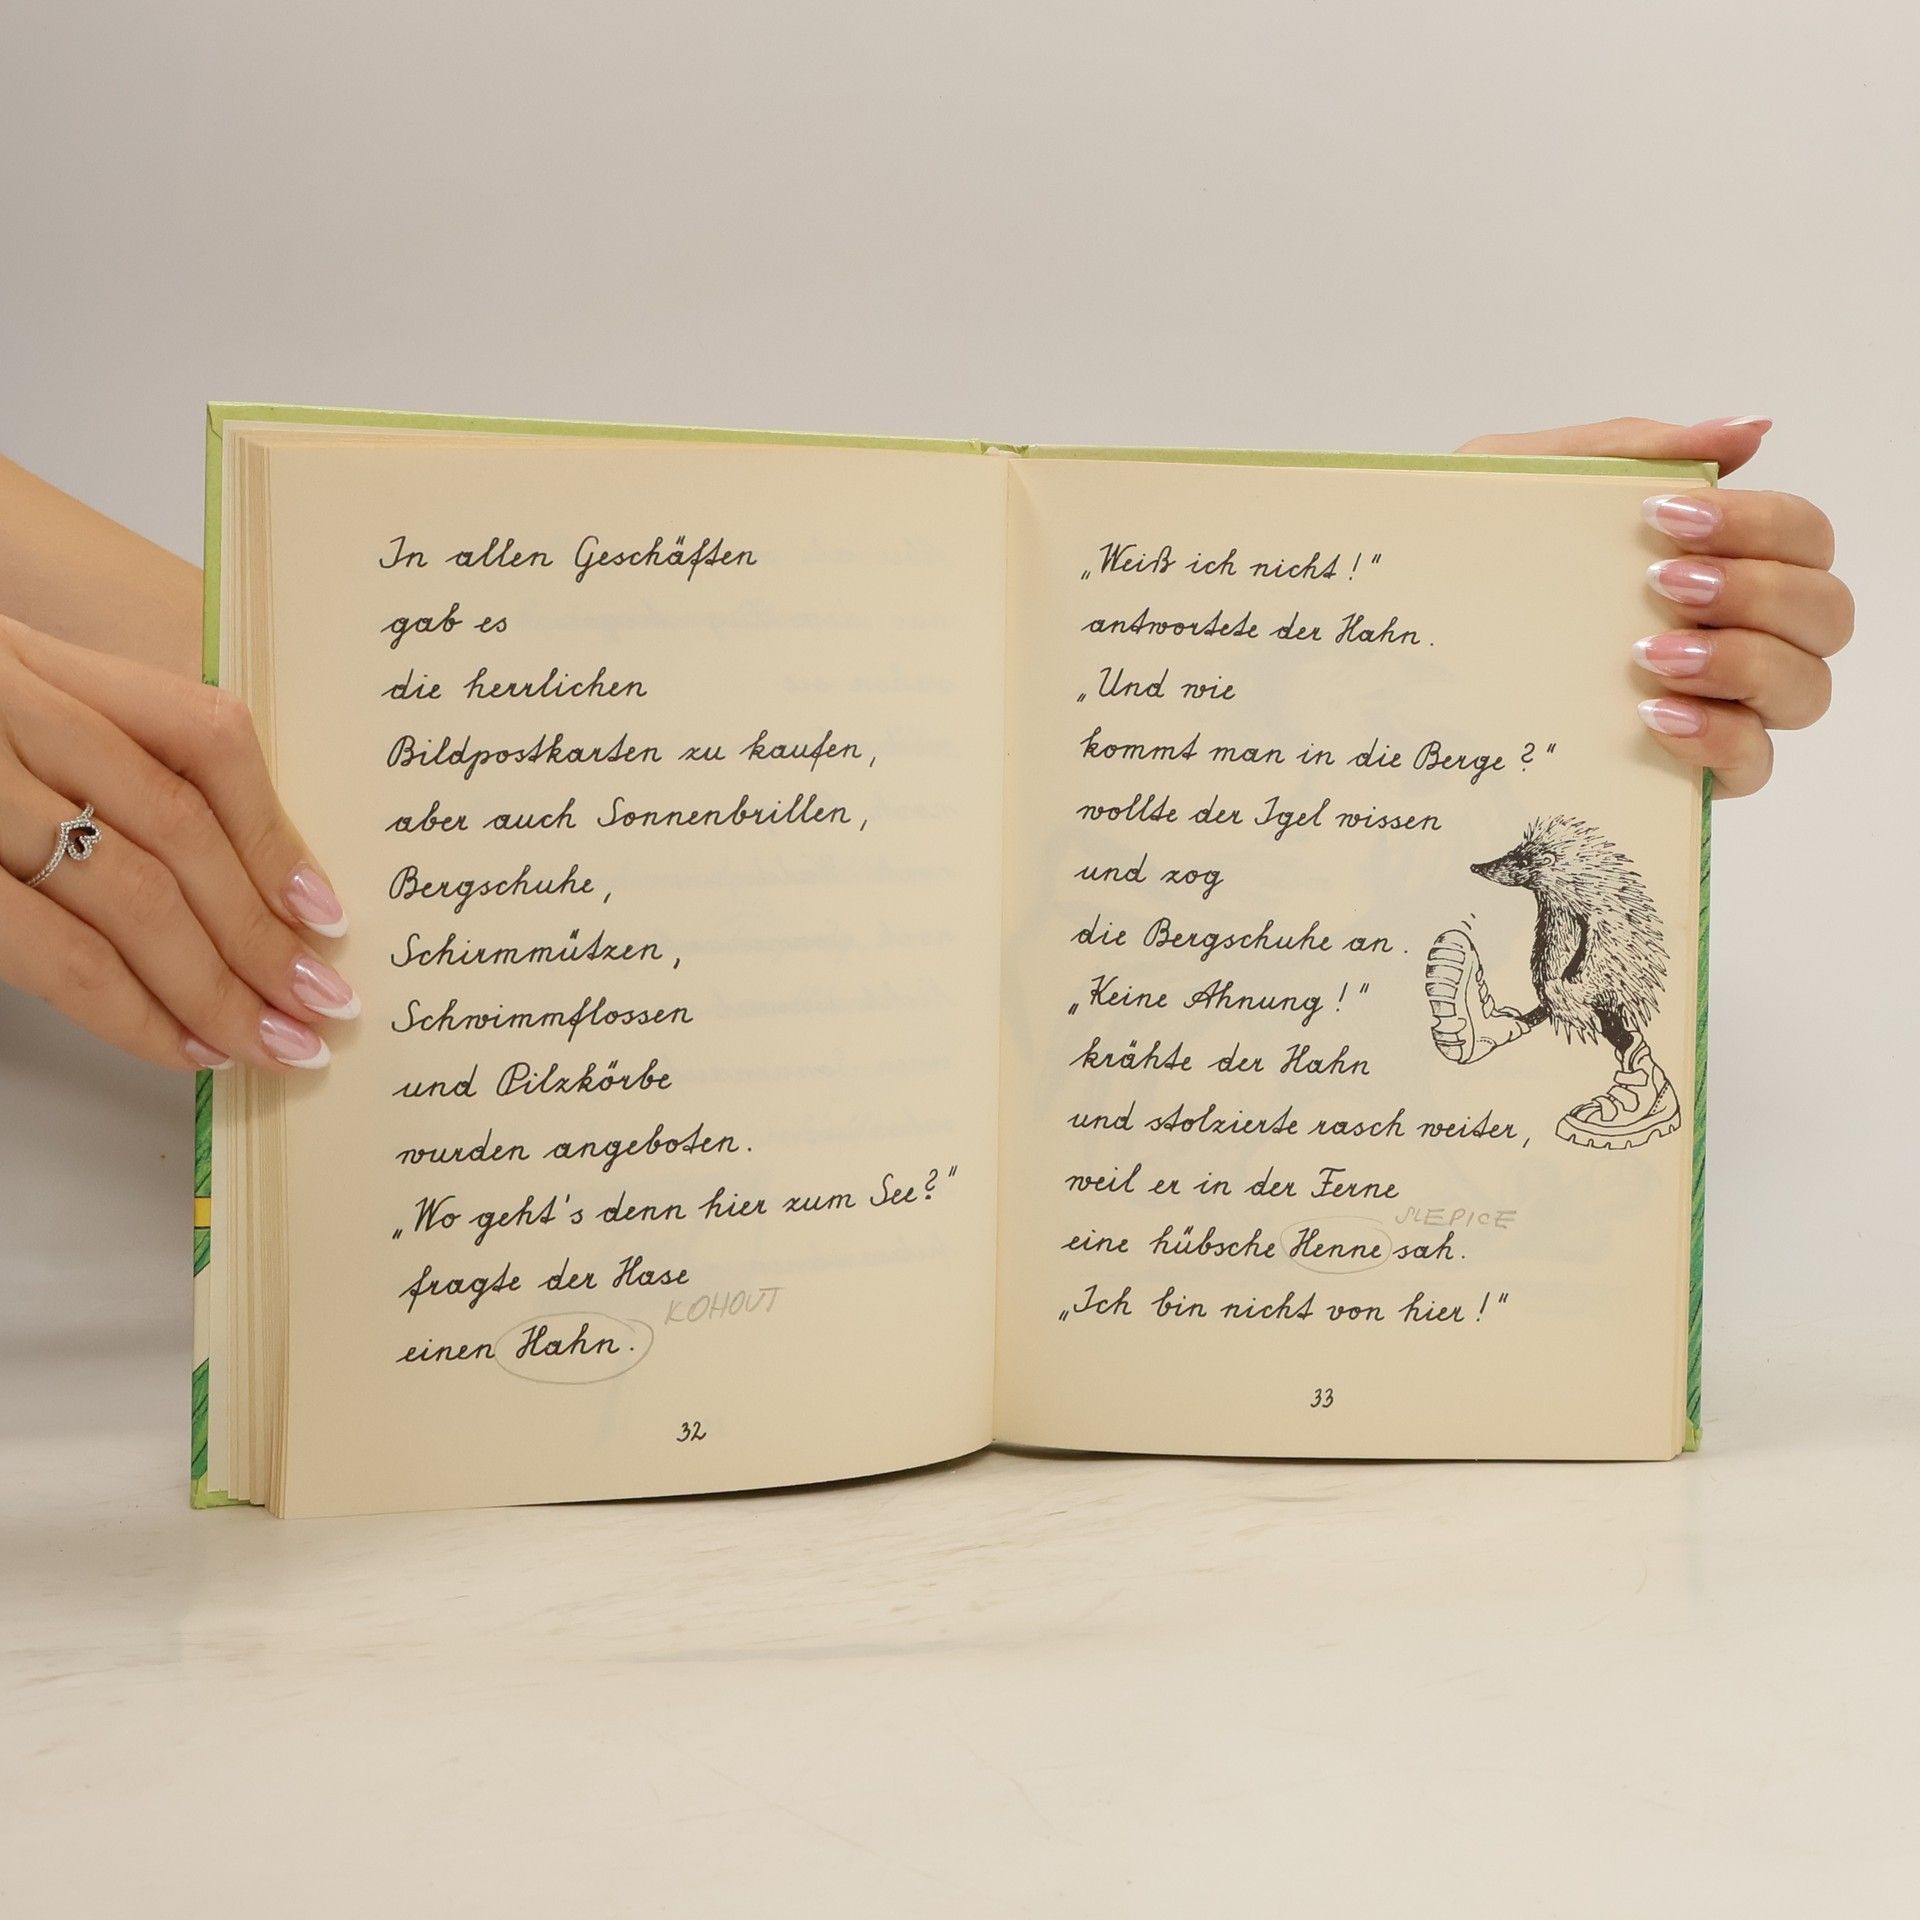 In allen Geschäften
gab es
die herrlichen
Bildpostkarten zu kaufen,
aber auch Sonnenbrillen,
Bergschuhe,
Schirmmützen,
Schwimmflossen
und Pilzkörbe
wurden angeboten.
„Wo geht's denn hier zum See?"
fragte der Hase
KOHOUT
einen Hahn.
32
„Weiß ich nicht!"
antwortete der Hahn.
„Und wie
kommt man in die Berge?"
wollte der Igel wissen
und zog
die Bergschuhe an.
„Keine Ahnung!"
krähte der Hahn
und stolzierte rasch weiter,
weil er in der Ferne
SLEPICE
eine hübsche Henne sah.
„Ich bin nicht von hier!"
33